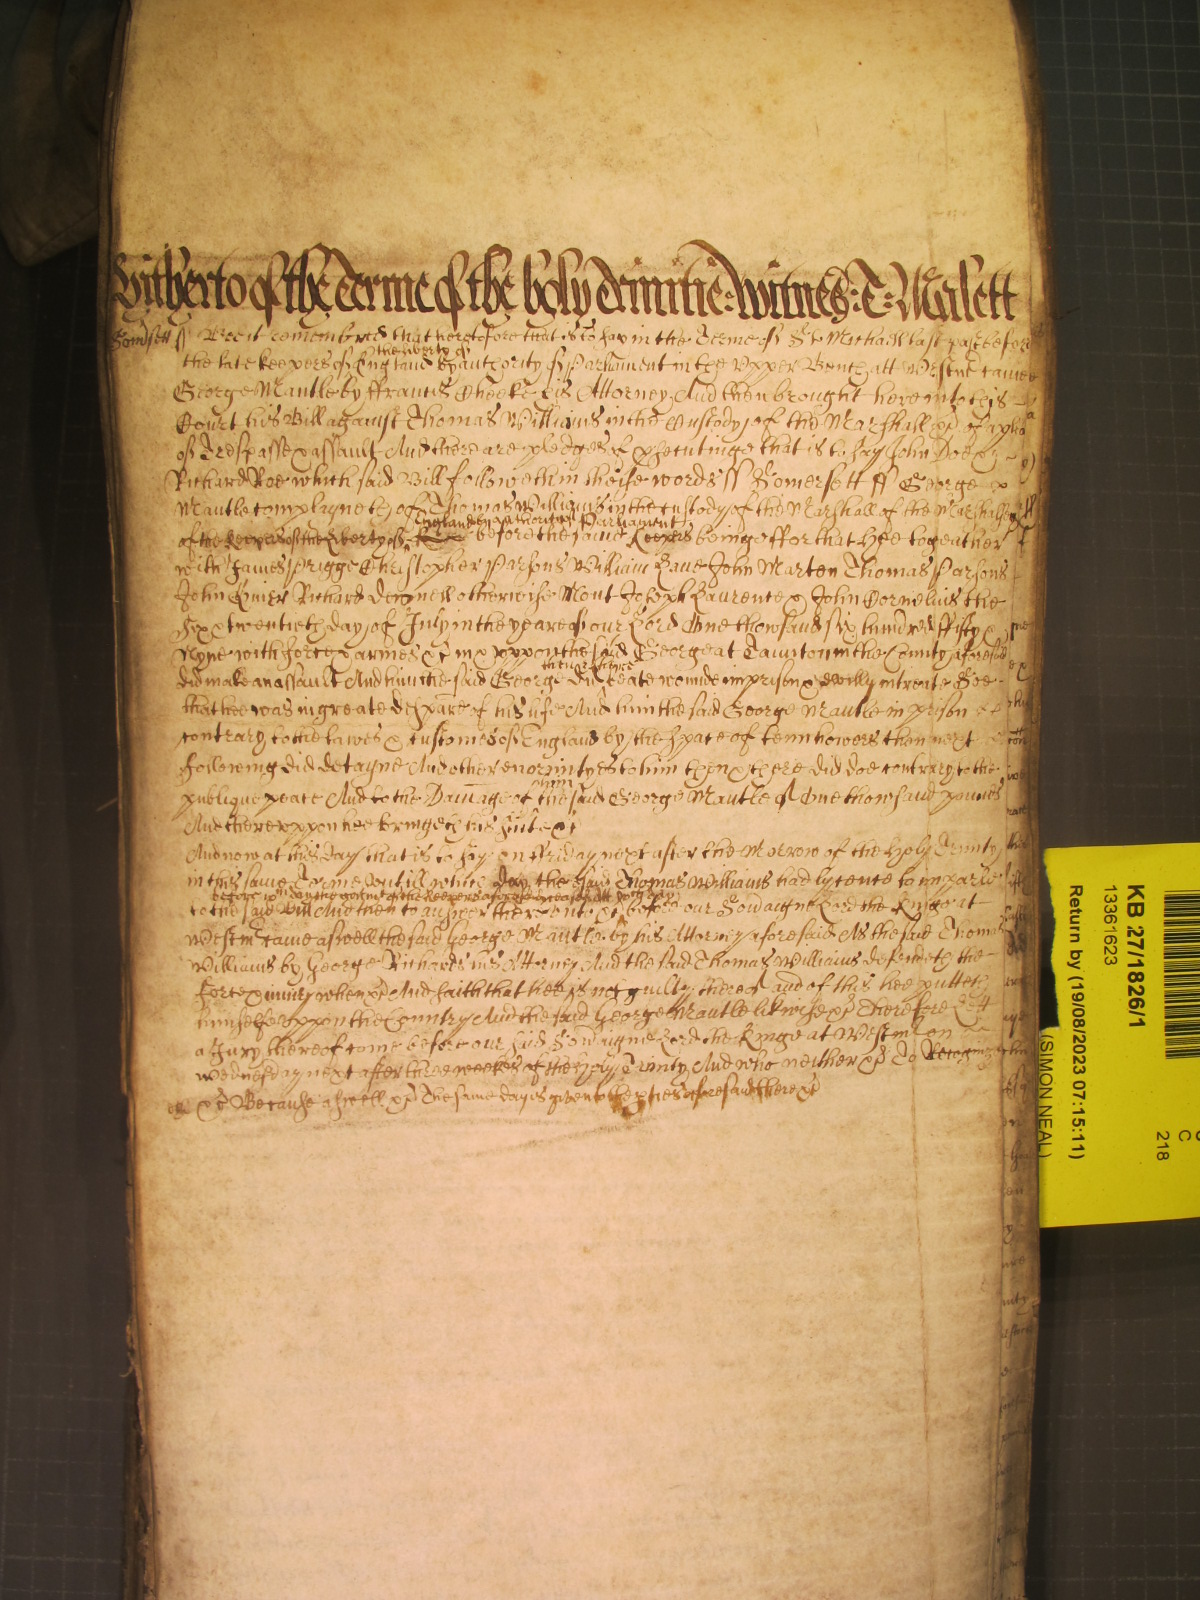 Hitherto of the Terme of the holy Trinitie: Witnes: T: Malett
Somersett ss Bee it remembred that heretofore that is to say in the Terme of St Michaell last past before
the late keepers of the liberty of England by authority of Parliament in the Upper Bench att Westmr came
George Mantle by Francis Cheeke his Attorney And then brought here into this
Court his Bill against Thomas Williams in the Custody of the Marshall &c of a plea
of Trespasse & assault And there are pledges of prosecutinge that is to say John Doe &
Richard Roe which said Bill followeth in theise words ss Somersett ss George
Mantle complayneth of Thomas Williams in the custody of the Marshall of the Marshalsey
of the keepers of the liberty of England by authority of Parliament before the same keepers being for that hee togeather
with James Prigge Christopher Parsons William Lane John Marten Thomas Parsons
John Richard otherwise Mout Joseph Laurence & John Cornelius the
Six & twentieth day of July in the yeare of our Lord One thowsand six hundred fifty &
Nyne with force & armes &c in & uppon the said George at Taunton in the County aforesaid
did make an assault And him the said George then & there did beate wounde imprison & evilly intreate Soe
that hee was in greate dispare of his life And him the said George Mantle in prison
contrary to the lawes & customes of England by the space of tenn howers then next
following did detayne And other enormityes to him then & there did doe contrary to the
publique peace And to the Damage of him the said George Mantle of One thowsand pounds
And thereuppon hee bringeth his suite &c
And now at this day that is to say on Friday next after the Morrow of the Holy Trinity
in this same Terme untill which day the said Thomas Williams had lycence to imparle
to the said Bill And then to answer thereunto &c before our Soveraigne Lord the Kinge at
Westmr came aswell the said George Mantle by his Attorney aforesaid As the said Thomas
Williams by George Richards his Attorney And the said Thomas Williams defendeth the
force & injury when &c And saith that hee is not guilty thereof and of this hee putteth
himselfe uppon the Country And the said George Mantle likewise &c Therefore Lett
a Jury thereof come before our said Soveraigne Lord the Kinge at Westmr on
wednesday next after three weekes of the holy Trinity And who neither &c To Recognize
&c Because aswell &c The same day is given to the pties aforesaid there &c
KB 27/1826/1
13361623
Return by (19/08/2023 07:15:11)
(SIMON NEAL)
C
218